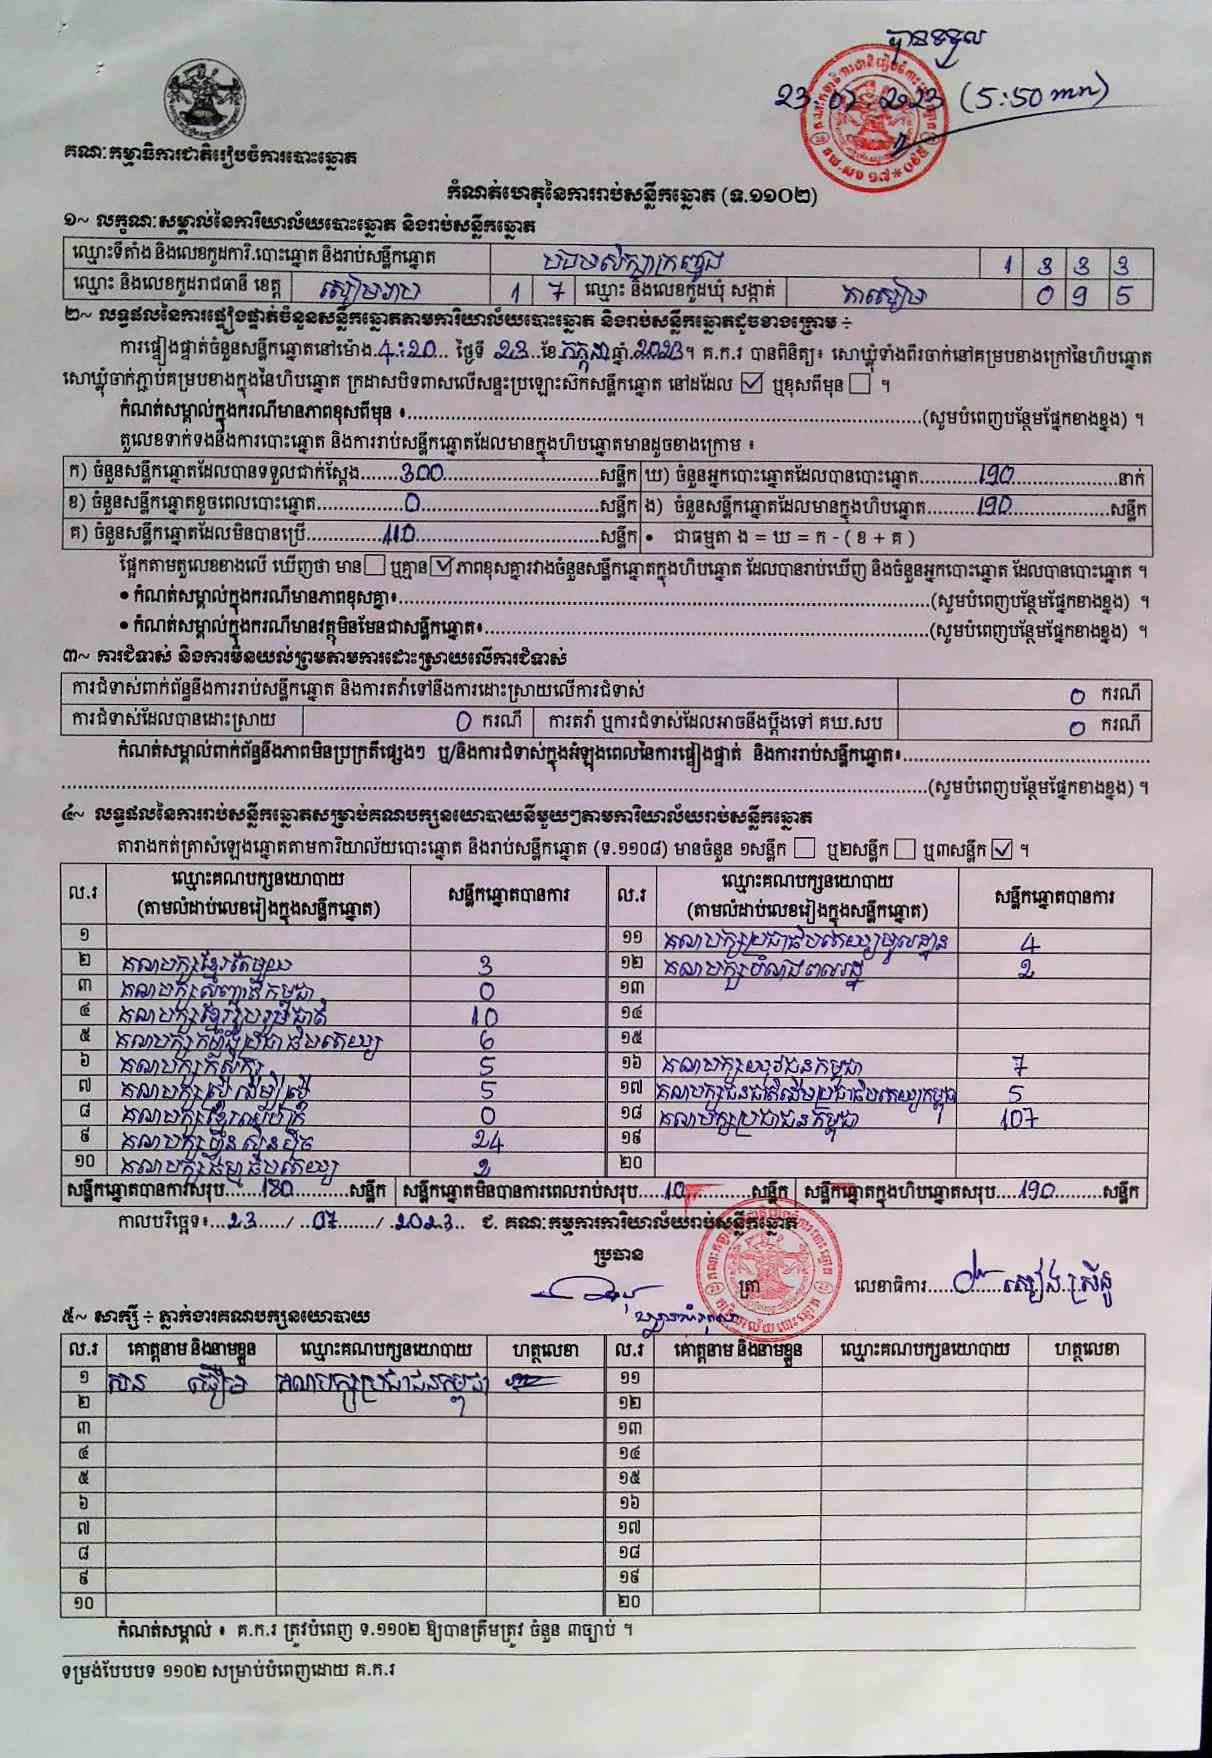 បានទទួល
23.07.2023 (5:50 mn)
គណៈកម្មាធិការជាតិរៀបចំការបោះឆ្នោត
កំណត់ហេតុនៃការរាប់សន្លឹកឆ្នោត (ទ.១១០២)
១~ លក្ខណៈសម្គាល់នៃការិយាល័យបោះឆ្នោត និងរាប់សន្លឹកឆ្នោត
ឈ្មោះទីតាំង និងលេខកូដការិ.បោះឆ្នោត និងរាប់សន្លឹកឆ្នោត 1 3 3 3
ឈ្មោះ និងលេខកូដរាជធានី ខេត្ត សៀមរាប 1 7 ឈ្មោះ និងលេខកូដឃុំ សង្កាត់ តាសៀម 0 9 5
២~ លទ្ធផលនៃការផ្ទៀងផ្ទាត់ចំនួនសន្លឹកឆ្នោតតាមការិយាល័យបោះឆ្នោត និងរាប់សន្លឹកឆ្នោតដូចខាងក្រោម ÷
ការផ្ទៀងផ្ទាត់ចំនួនសន្លឹកឆ្នោតនៅម៉ោង.4:20... ថ្ងៃទី 23 ខែ កក្កដា ឆ្នាំ 2023។ គ.ក.រ បានពិនិត្យ៖ សោឃ្លុំទាំងពីរចាក់នៅគម្របខាងក្រៅនៃហិបឆ្នោត
សោឃ្លុំចាក់ភ្ជាប់គម្របខាងក្នុងនៃហិបឆ្នោត ក្រដាសបិទពាសលើសន្ទះប្រឡោះស៊កសន្លឹកឆ្នោត នៅដដែល ☑ ឬខុសពីមុន ☐ ។
កំណត់សម្គាល់ក្នុងករណីមានភាពខុសពីមុន ៖......(សូមបំពេញបន្ថែមផ្នែកខាងខ្នង) ។
តួលេខទាក់ទងនឹងការបោះឆ្នោត និងការរាប់សន្លឹកឆ្នោតដែលមានក្នុងហិបឆ្នោតមានដូចខាងក្រោម ៖
ក) ចំនួនសន្លឹកឆ្នោតដែលបានទទួលជាក់ស្តែង.......300......សន្លឹក ឃ) ចំនួនអ្នកបោះឆ្នោតដែលបានបោះឆ្នោត......190......នាក់
ខ) ចំនួនសន្លឹកឆ្នោតខូចពេលបោះឆ្នោត......0......សន្លឹក ង) ចំនួនសន្លឹកឆ្នោតដែលមានក្នុងហិបឆ្នោត......190......សន្លឹក
គ) ចំនួនសន្លឹកឆ្នោតដែលមិនបានប្រើ......110......សន្លឹក • ជាធម្មតា ង = ឃ = ក - ( ខ + គ )
ផ្អែកតាមតួលេខខាងលើ ឃើញថា មាន ☐ ឬគ្មាន ☑ ភាពខុសគ្នារវាងចំនួនសន្លឹកឆ្នោតក្នុងហិបឆ្នោត ដែលបានរាប់ឃើញ និងចំនួនអ្នកបោះឆ្នោត ដែលបានបោះឆ្នោត ។
• កំណត់សម្គាល់ក្នុងករណីមានភាពខុសគ្នា៖......(សូមបំពេញបន្ថែមផ្នែកខាងខ្នង) ។
• កំណត់សម្គាល់ក្នុងករណីមានវត្ថុមិនមែនជាសន្លឹកឆ្នោត៖......(សូមបំពេញបន្ថែមផ្នែកខាងខ្នង) ។
៣~ ការជំទាស់ និងការមិនយល់ព្រមតាមការដោះស្រាយលើការជំទាស់
ការជំទាស់ពាក់ព័ន្ធនឹងការរាប់សន្លឹកឆ្នោត និងការតវ៉ាទៅនឹងការដោះស្រាយលើការជំទាស់ 0 ករណី
ការជំទាស់ដែលបានដោះស្រាយ 0 ករណី ការតវ៉ា ឬការជំទាស់ដែលអាចនឹងប្តឹងទៅ គឃ.សប 0 ករណី
កំណត់សម្គាល់ពាក់ព័ន្ធនឹងភាពមិនប្រក្រតីផ្សេងៗ ឬ/និងការជំទាស់ក្នុងអំឡុងពេលនៃការផ្ទៀងផ្ទាត់ និងការរាប់សន្លឹកឆ្នោត៖......
......(សូមបំពេញបន្ថែមផ្នែកខាងខ្នង) ។
៤~ លទ្ធផលនៃការរាប់សន្លឹកឆ្នោតសម្រាប់គណបក្សនយោបាយនីមួយៗតាមការិយាល័យរាប់សន្លឹកឆ្នោត
តារាងកត់ត្រាសំឡេងឆ្នោតតាមការិយាល័យបោះឆ្នោត និងរាប់សន្លឹកឆ្នោត (ទ.១១០៨) មានចំនួន ១សន្លឹក ☐ ឬ២សន្លឹក ☐ ឬ៣សន្លឹក ☑ ។
ល.រ ឈ្មោះគណបក្សនយោបាយ (តាមលំដាប់លេខរៀងក្នុងសន្លឹកឆ្នោត) សន្លឹកឆ្នោតបានការ ល.រ ឈ្មោះគណបក្សនយោបាយ (តាមលំដាប់លេខរៀងក្នុងសន្លឹកឆ្នោត) សន្លឹកឆ្នោតបានការ
១ ១១ គណបក្សប្រជាធិបតេយ្យមូលដ្ឋាន 4
២ គណបក្សខ្មែរតែមួយ 3 ១២ គណបក្សបំណងពលរដ្ឋ 2
៣ គណបក្សសញ្ជាតិកម្ពុជា 0 ១៣
៤ គណបក្សខ្មែររួបរួមជាតិ 10 ១៤
៥ គណបក្សកម្លាំងប្រជាធិបតេយ្យ 6 ១៥
៦ គណបក្សកសិករ 5 ១៦ គណបក្សយុវជនកម្ពុជា 7
៧ គណបក្សស្ត្រីដើម្បីស្ត្រី 5 ១៧ គណបក្សជនជាតិដើមប្រជាធិបតេយ្យកម្ពុជា 5
៨ គណបក្សខ្មែរឈប់ក្រ 0 ១៨ គណបក្សប្រជាជនកម្ពុជា 107
៩ គណបក្សហ៊្វុនស៊ិនប៉ិច 24 ១៩
១០ គណបក្សធម្មាធិបតេយ្យ 2 ២០
សន្លឹកឆ្នោតបានការសរុប......180......សន្លឹក សន្លឹកឆ្នោតមិនបានការពេលរាប់សរុប.....10......សន្លឹក សន្លឹកឆ្នោតក្នុងហិបឆ្នោតសរុប....190......សន្លឹក
កាលបរិច្ឆេទ៖...23...../...07....../..2023.. ជ. គណៈកម្មការការិយាល័យរាប់សន្លឹកឆ្នោត
ប្រធាន
ត្រា
លេខាធិការ......
៥~ សាក្សី ÷ ភ្នាក់ងារគណបក្សនយោបាយ
ល.រ គោត្តនាម និងនាមខ្លួន ឈ្មោះគណបក្សនយោបាយ ហត្ថលេខា ល.រ គោត្តនាម និងនាមខ្លួន ឈ្មោះគណបក្សនយោបាយ ហត្ថលេខា
១ សាន គណបក្សប្រជាជនកម្ពុជា ១១
២ ១២
៣ ១៣
៤ ១៤
៥ ១៥
៦ ១៦
៧ ១៧
៨ ១៨
៩ ១៩
១០ ២០
កំណត់សម្គាល់ ៖ គ.ក.រ ត្រូវបំពេញ ទ.១១០២ ឱ្យបានត្រឹមត្រូវ ចំនួន ៣ច្បាប់ ។
ទម្រង់បែបបទ ១១០២ សម្រាប់បំពេញដោយ គ.ក.រ